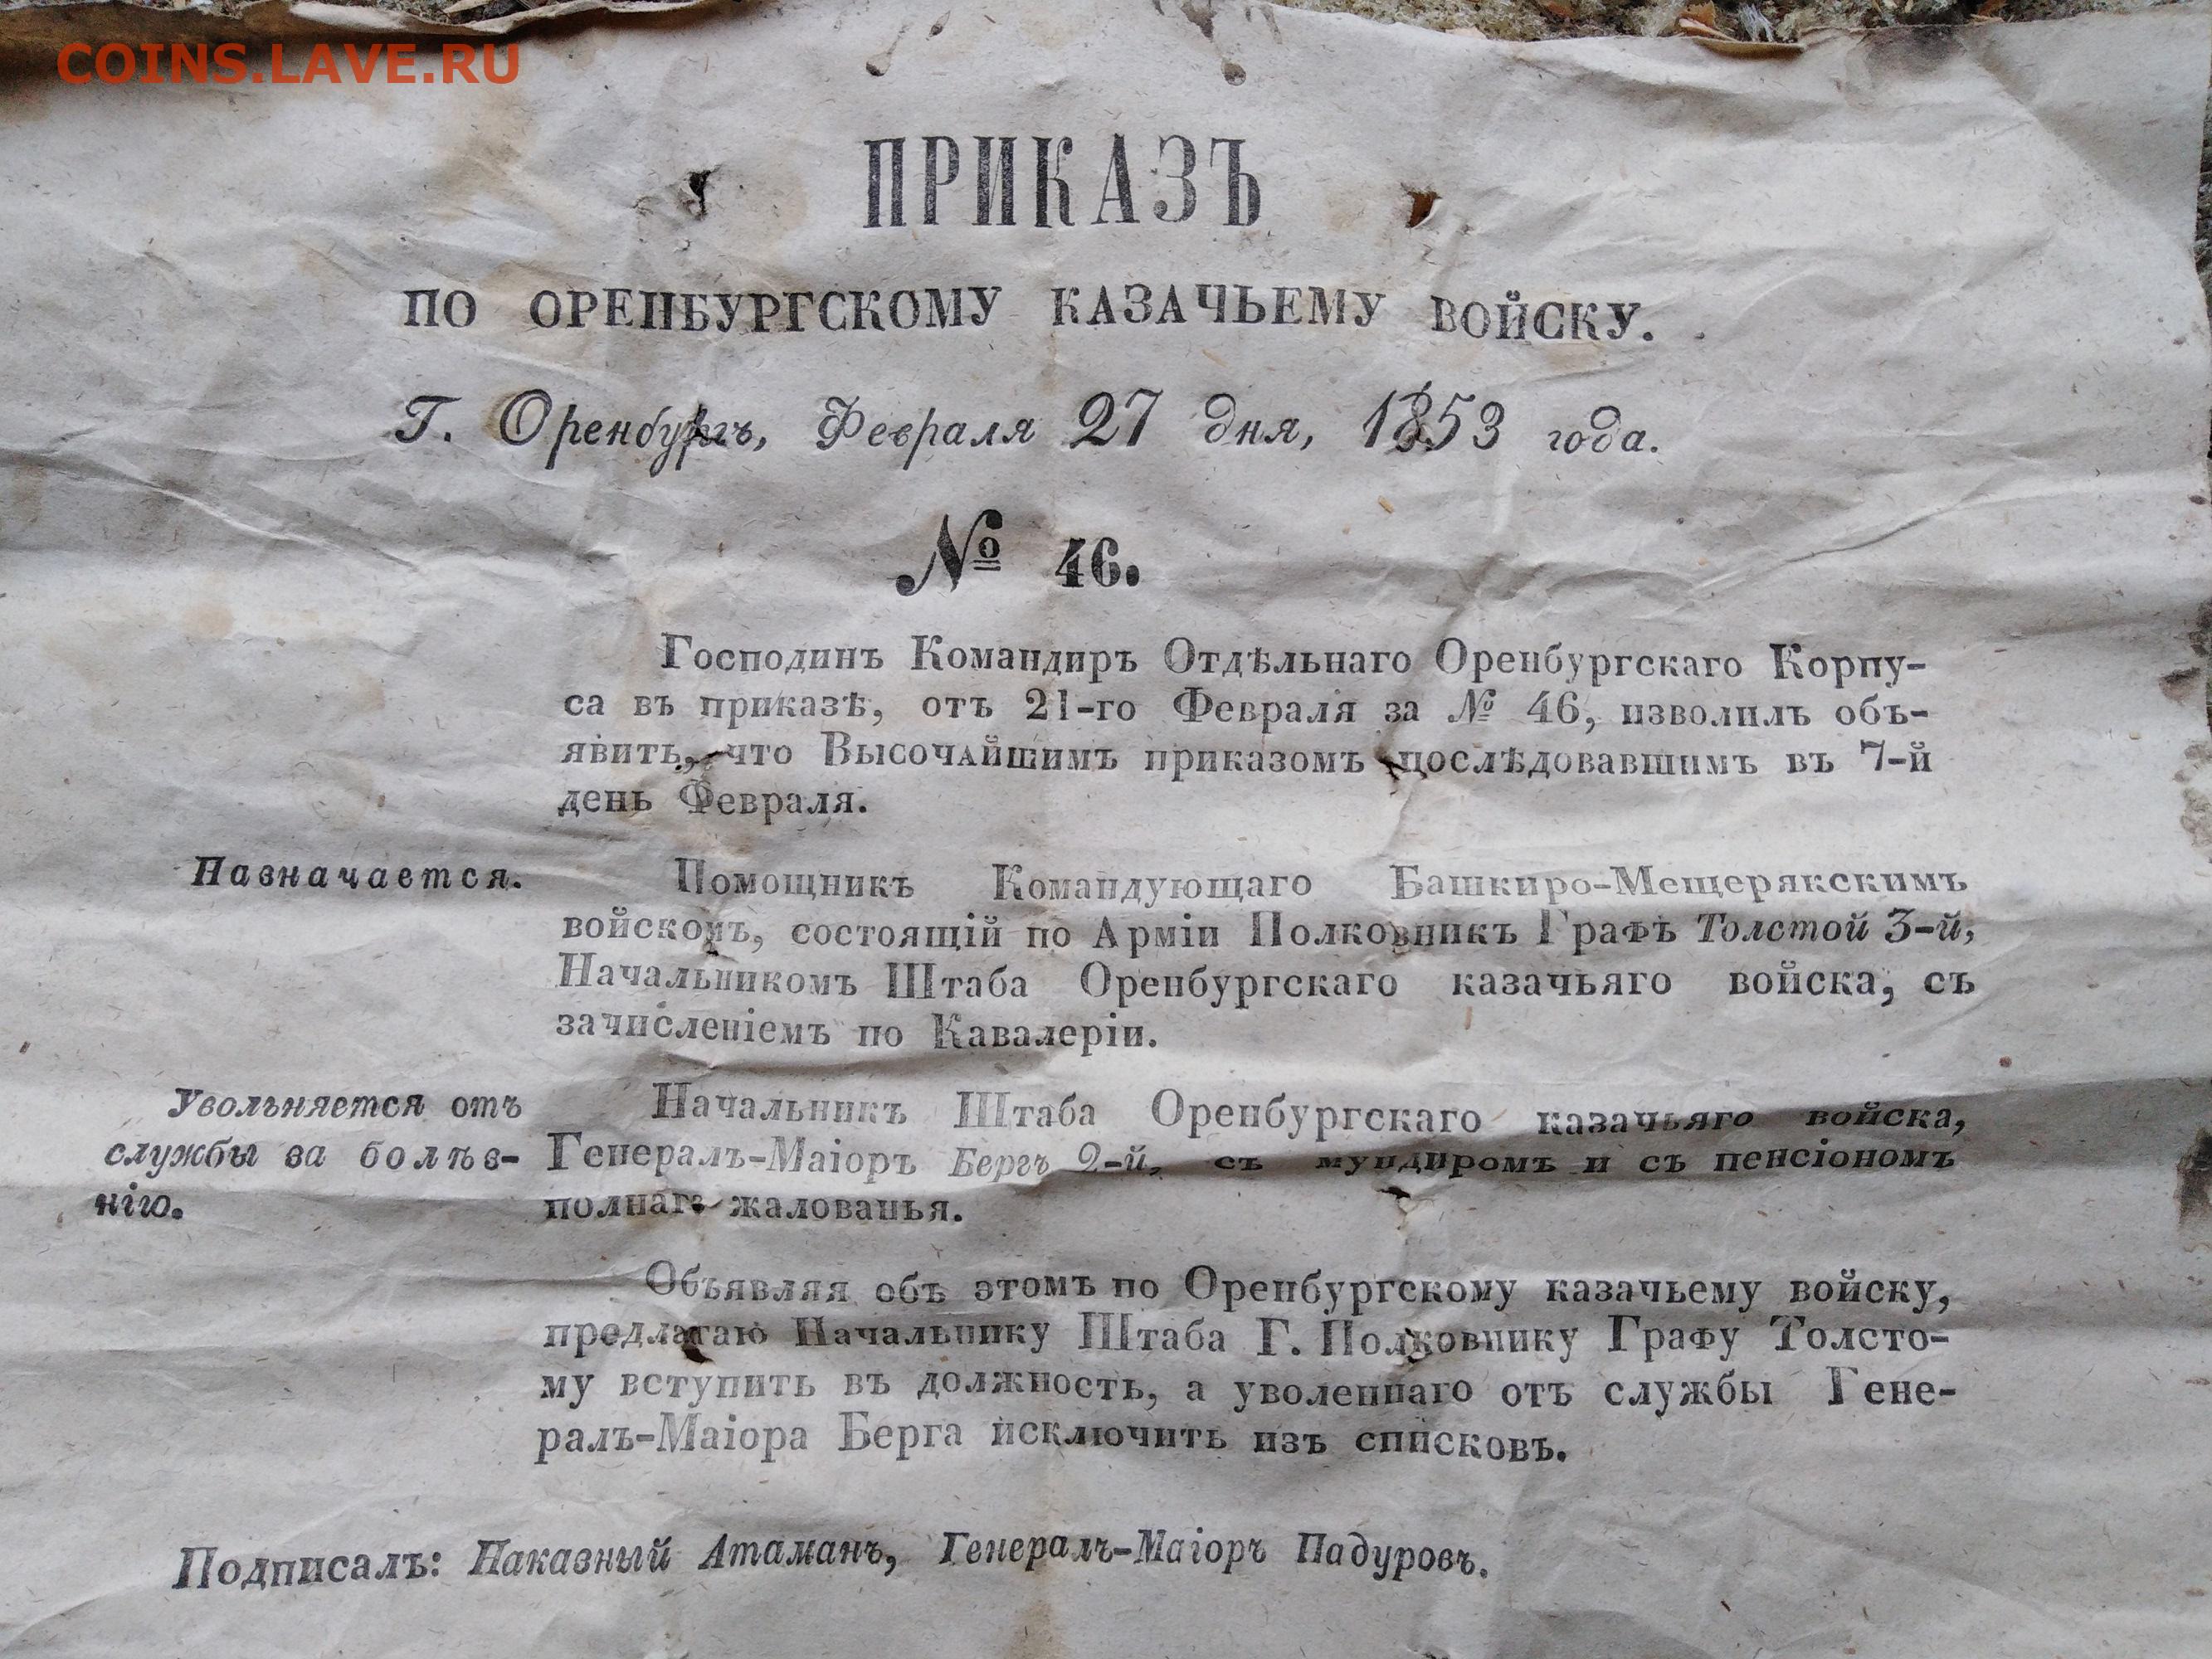 COINS.LAVE.RU
ПРИКАЗЪ
ПО ОРЕНБУРГСКОМУ КАЗАЧЬЕМУ ВОЙСКУ.
Г. Оренбургъ, Февраля 27 дня, 1853 года.
№ 46.
Господинъ Командиръ Отдѣльнаго Оренбургскаго Корпу-
са въ приказѣ, отъ 21-го Февраля за № 46, изволилъ объ-
явить, что Высочайшимъ приказомъ послѣдовавшимъ въ 7-й
день Февраля.
Назначается.
Помощникъ Командующаго Башкиро-Мещерякскимъ
войскомъ, состоящій по Арміи Полковникъ Графъ Толстой 3-й,
Начальникомъ Штаба Оренбургскаго казачьяго войска, съ
зачисленіемъ по Кавалеріи.
Увольняется отъ
службы за болѣз-
нію.
Начальникъ Штаба Оренбургскаго казачьяго войска,
Генералъ-Маіоръ Бергъ 2-й, съ мундиромъ и съ пенсіономъ
полнаго жалованья.
Объявляя объ этомъ по Оренбургскому казачьему войску,
предлагаю Начальнику Штаба Г. Полковнику Графу Толсто-
му вступить въ должность, а уволеннаго отъ службы Гене-
ралъ-Маіора Берга исключить изъ списковъ.
Подписалъ: Наказный Атаманъ, Генералъ-Маіоръ Падуровъ.